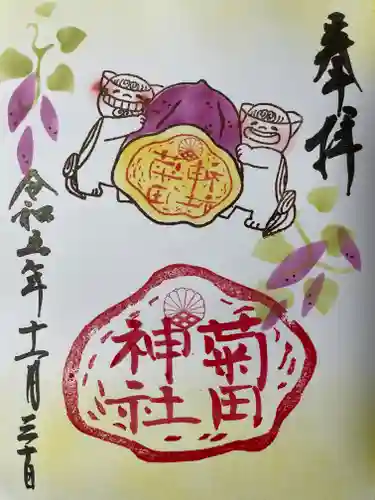 奉拝
菊田
神社
菊田
神社
令和五年十一月三十日